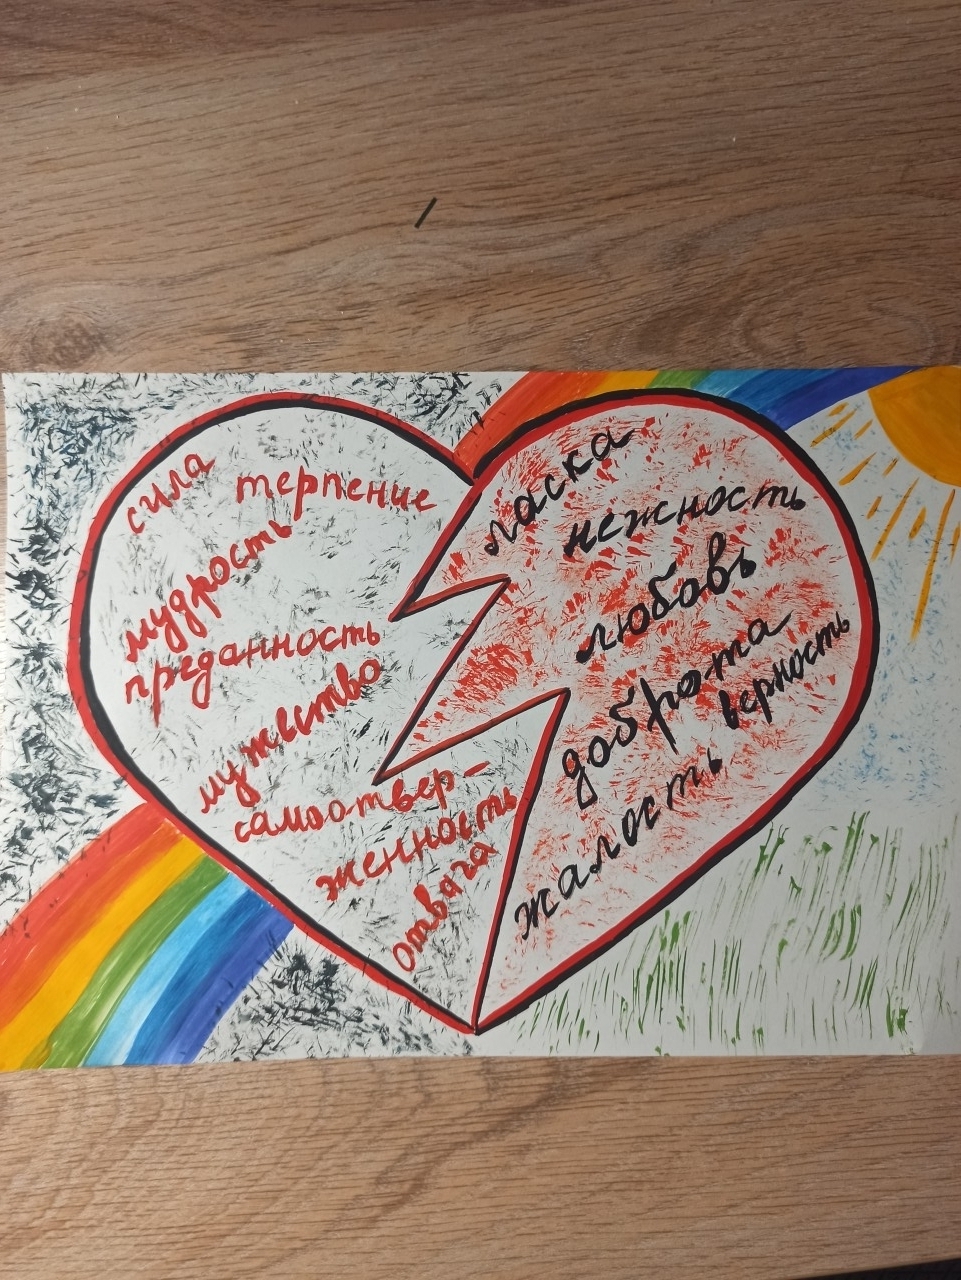 сила
терпение
мудрость
преданность
мужество
самоотвер-
женность
отвага
ласка
нежность
любовь
доброта
верность
жалость